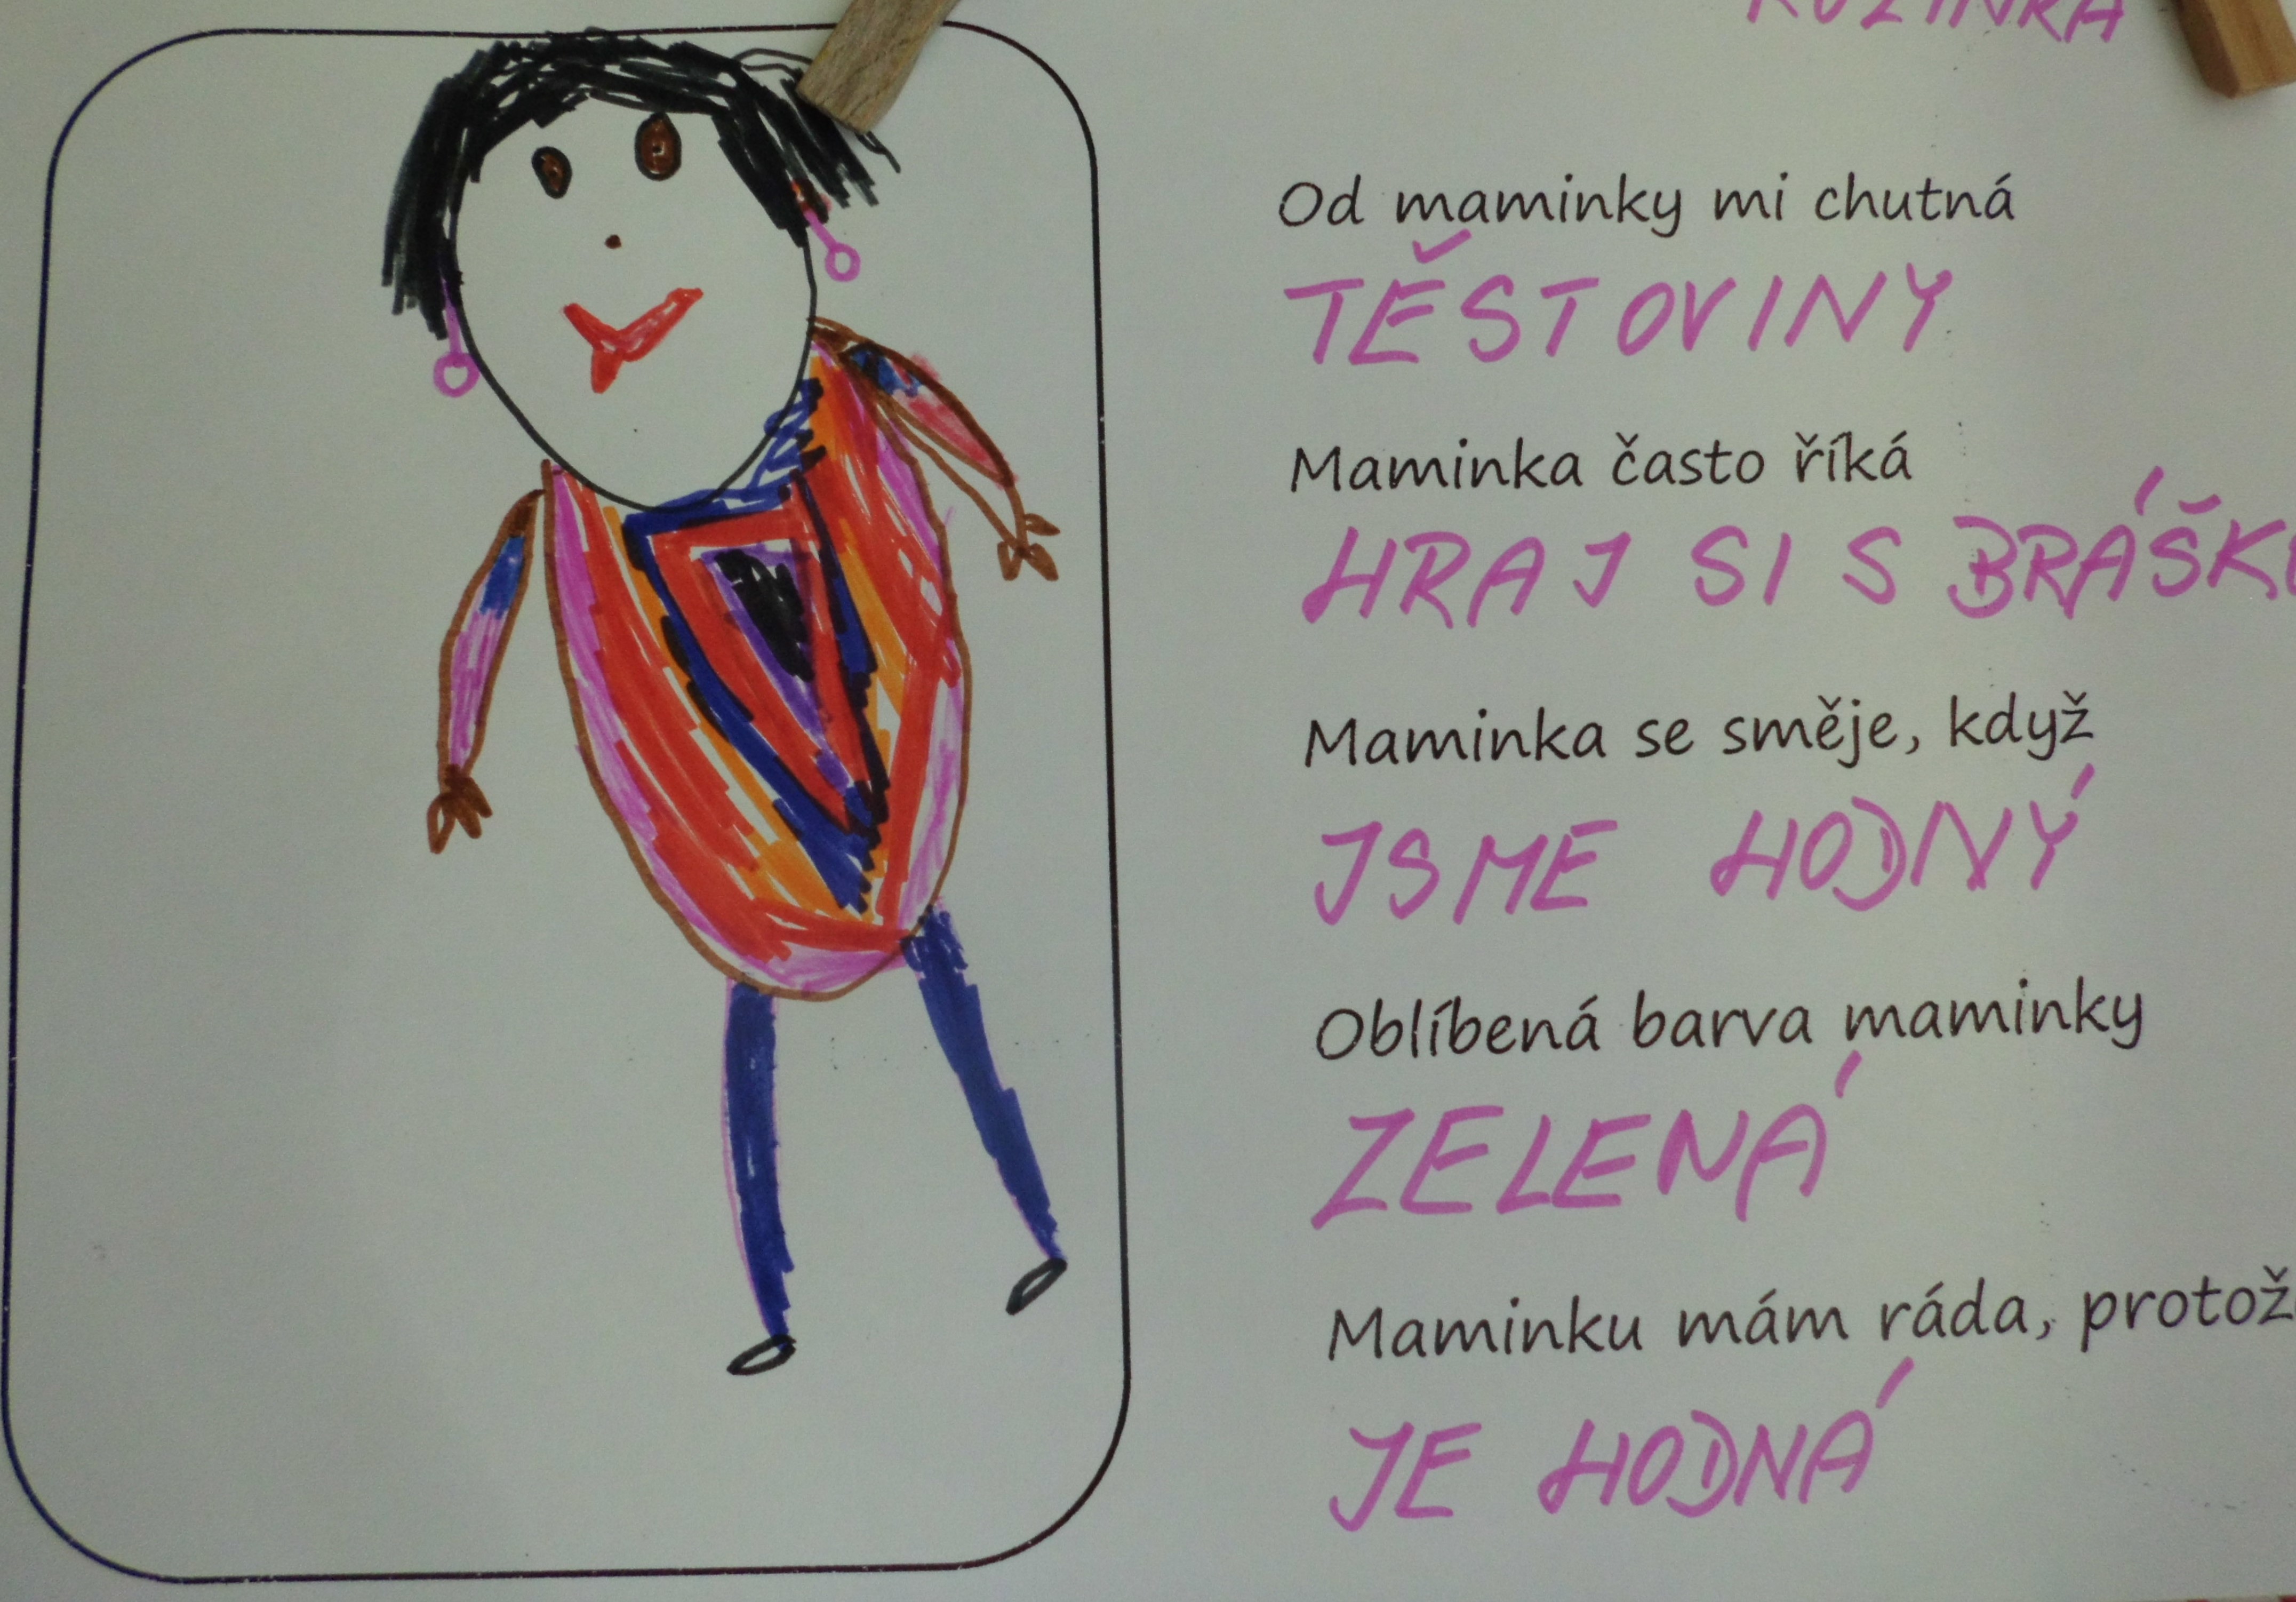 Od maminky mi chutná
TĚSTOVINY
Maminka často říká
HRAJ SI S BRÁŠK
Maminka se směje, když
JSME HODNÝ
Oblíbená barva maminky
ZELENÁ
Maminku mám ráda, protož
JE HODNÁ